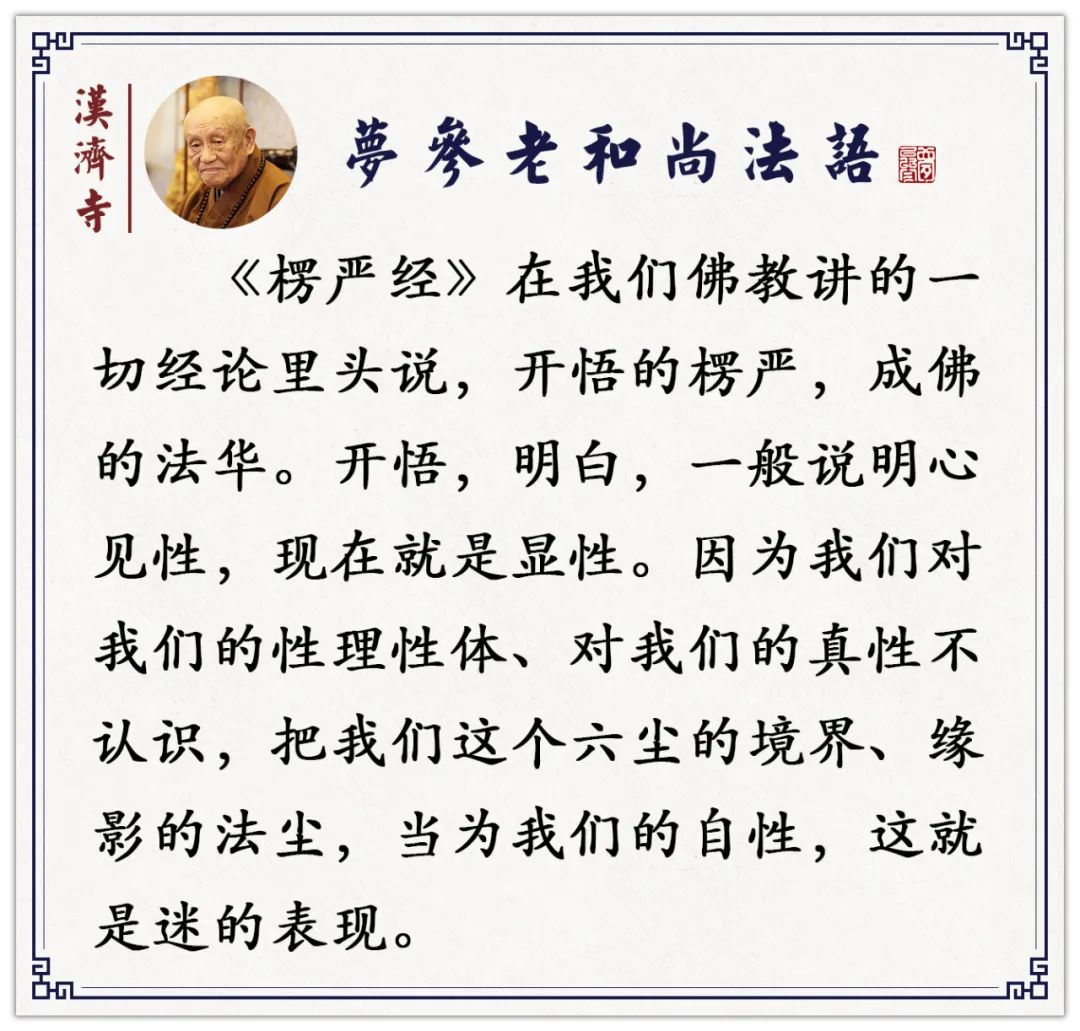 漢濟寺
夢參老和尚法語
《楞严经》在我们佛教讲的一
切经论里头说，开悟的楞严，成佛
的法华。开悟，明白，一般说明心
见性，现在就是显性。因为我们对
我们的性理性体、对我们的真性不
认识，把我们这个六尘的境界、缘
影的法尘，当为我们的自性，这就
是迷的表现。